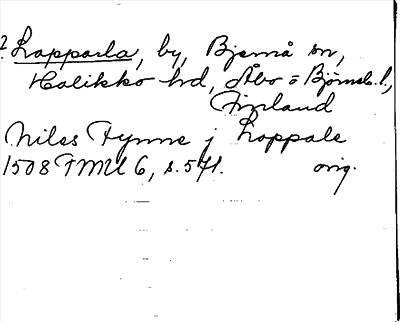 ? Lapparla, by, Bjernå sn,
Halikko hd, Åbo o Björneb. l.,
Finland
Niles Fynne j Loppale
1508 FMU 6, s. 571. orig.